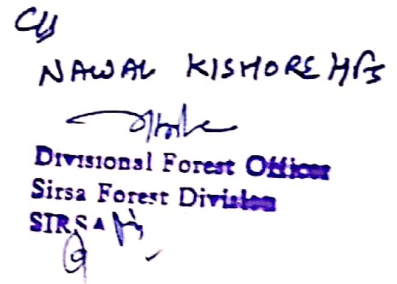 NAWAL KISHORE HFS
Divisional Forest Officer
Sirsa Forest Division
SIRSA